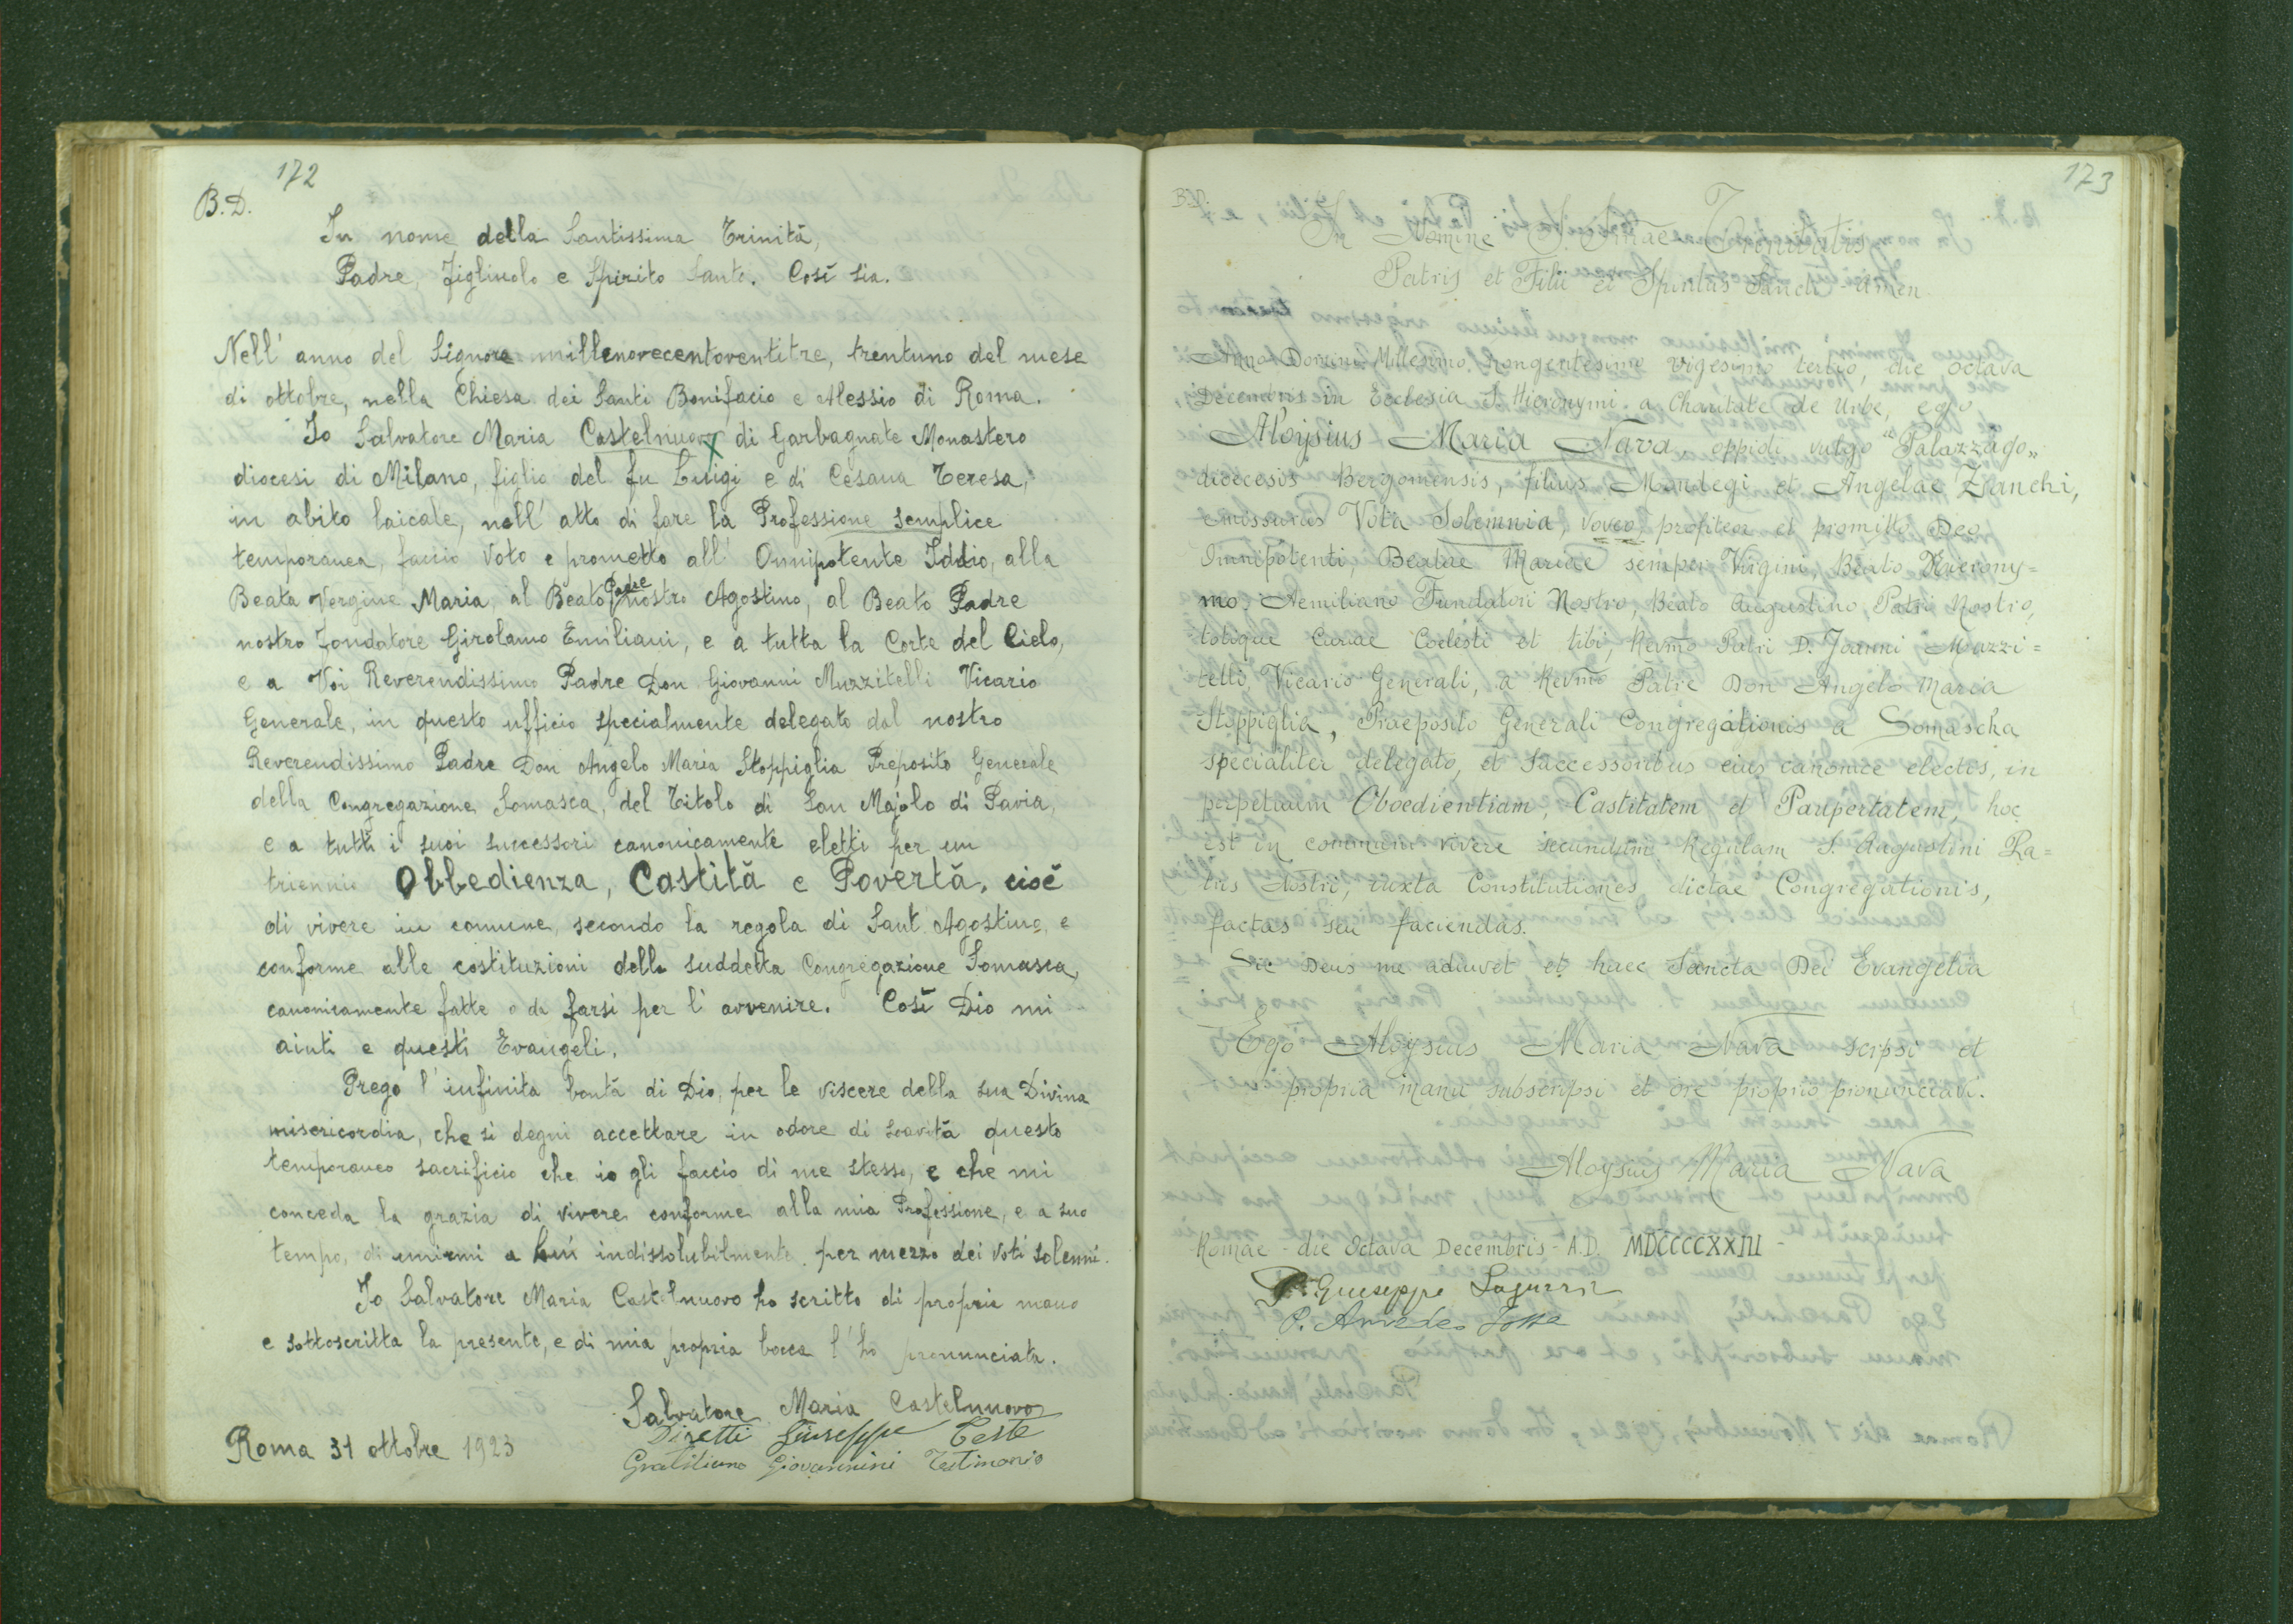 172
B. D.
In nome della Santissima Trinità,
Padre, Figliuolo e Spirito Santo. Così sia.
Nell' anno del Signore millenovecentoventitre, trentuno del mese
di ottobre, nella Chiesa dei Santi Bonifacio e Alessio di Roma.
Io Salvatore Maria Castelnuovo di Garbagnate Monastero
diocesi di Milano, figlio del fu Luigi e di Cesana Teresa,
in abito laicale, nell' atto di fare la Professione semplice
temporanea, faccio Voto e prometto all' Onnipotente Iddio, alla
Beata Vergine Maria, al Beato Padre nostro Agostino, al Beato Padre
nostro Fondatore Girolamo Emiliani, e a tutta la Corte del Cielo,
e a Voi Reverendissimo Padre Don Giovanni Muzzitelli Vicario
Generale, in questo ufficio specialmente delegato dal nostro
Reverendissimo Padre Don Angelo Maria Stoppiglia Preposito Generale
della Congregazione Somasca, del Titolo di San Majolo di Pavia,
e a tutti i suoi successori canonicamente eletti per un
triennio Obbedienza, Castità e Povertà, cioè
di vivere in comune, secondo la regola di Sant' Agostino, e
conforme alle costituzioni della suddetta Congregazione Somasca,
canonicamente fatte o da farsi per l' avvenire. Così Dio mi
aiuti e questi Evangeli.
Prego l' infinita bontà di Dio, per le viscere della sua Divina
misericordia, che si degni accettare in odore di soavità questo
temporaneo sacrificio che io gli faccio di me stesso, e che mi
conceda la grazia di vivere conforme alla mia Professione, e a suo
tempo, di unirmi a Lui indissolubilmente per mezzo dei Voti solenni.
Io Salvatore Maria Castelnuovo ho scritto di propria mano
e sottoscritta la presente, e di mia propria bocca l' ho pronunciata.
Salvatore Maria Castelnuovo
Giuseppe Teste
Roma 31 ottobre 1923
Giovannini Testimonio
173
B.D.
In Nomine S. Smae Trinitatis
Patris et Filii et Spiritus Sancti - Amen
Anno Domini Millesimo Nongentesimo Vigesimo tertio, die octava
Decembris in Ecclesia S. Hieronymi a Charitate de Urbe, ego
Aloysius Maria Nava oppidi vulgo "Palazzago"
diœcesis Bergomensis, filius Mondegi et Angelae Zianchi,
emissurus Vota Solemnia, voveo, profiteor et promitto Deo
Omnipotenti, Beatae Mariae semper Virgini, Beato Hierony=
mo, Aemiliano Fundatori Nostro, Beato Augustino, Patri Nostro,
totique Curiae Coelesti et tibi, Revmo Patri D. Joanni Muzzi=
telli, Vicario Generali, a Revmo Patre Don Angelo Maria
Stoppiglia, Praeposito Generali Congregationis a Somascha
specialiter delegato, et Successoribus eius canonice electis, in
perpetuum Oboedientiam, Castitatem et Paupertatem, hoc
est in communi vivere secundum Regulam S. Augustini Pa=
tris Nostri, iuxta Constitutiones dictae Congregationis,
factas seu faciendas.
Sic Deus me adiuvet et haec Sancta Dei Evangelia
Ego Aloysius Maria Nava scripsi et
propria manu subscripsi et ore proprio pronunciavi.
Aloysius Maria Nava
Romae - die Octava Decembris - A.D. MDCCCCXXIII -
P. Giuseppe
P. Amedeo